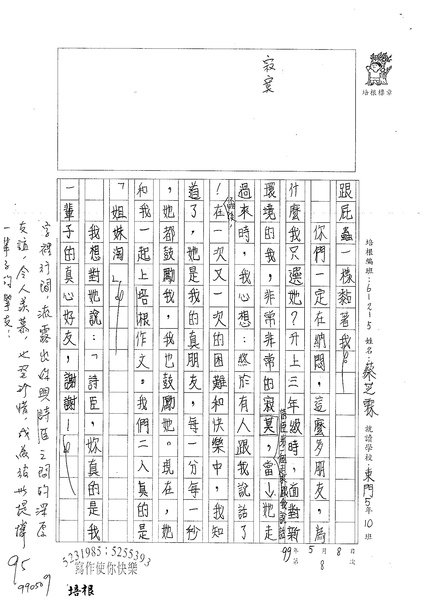 培根標章
培根編班：61215 姓名：蔡芝霖 就讀學校：東門5年10班
99年5月8日
第8次
寂寞
跟屁蟲一樣黏著我。
你們一定在納悶，這麼多朋友，為
什麼我只選她？升上三年級時，面對新
環境的我，非常非常的寂寞，當她走
過來時，我心想：終於有人跟我說話了
！在一次又一次的困難和快樂中，我知
道了，她是我的真朋友，每一分每一秒
，她都鼓勵我，我也鼓勵她。現在，她
和我一起上培根作文。我們二人真的是
「姐妹淘」。
我想對她說：「詩臣，妳真的是我
一輩子的真心好友，謝謝！」
字裡行間，流露出妳與詩臣之間的深厚
友誼，令人羨慕
一輩子的摯友。
95
990509
5231985；5255393
寫作使你快樂
培根